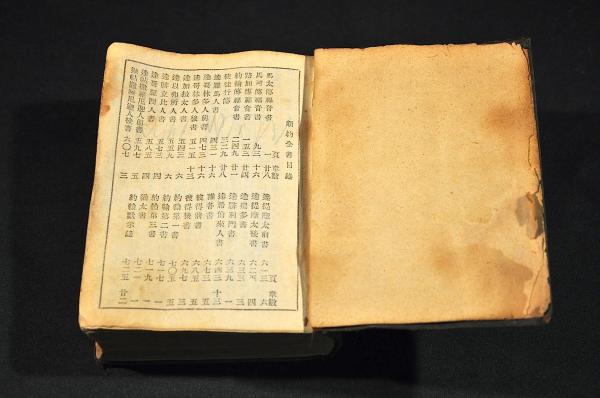 新約全書目錄
頁 章數
馬太傳福音書 一 廿八
馬可傳福音書 九三 十六
路加傳福音書 一五三 廿四
約翰傳福音書 二四九 廿一
使徒行傳 三二九 廿八
達羅馬人書 四三一 十六
達哥林多人前書 四七三 十六
達哥林多人後書 五一五 十三
達加拉太人書 六
達以弗所人書 五五九 六
達腓立比人書 五七三 四
達哥羅西人書 五八五 四
達帖撒羅尼迦人前書 五九七 五
達帖撒羅尼迦人後書 六〇七 三
頁 章數
達提摩太前書 六一三 六
達提摩太後書 六二五 四
達提多書 六三三 三
達腓利門書 六三九 一
達希伯來人書 六四三 十三
雅各書 六七三 五
彼得前書 六八五 五
彼得後書 六九七 三
約翰第一書 七〇五 五
約翰第二書 七一七 一
約翰第三書 七一九 一
猶太書 七二一 一
約翰默示錄 七二五 廿二